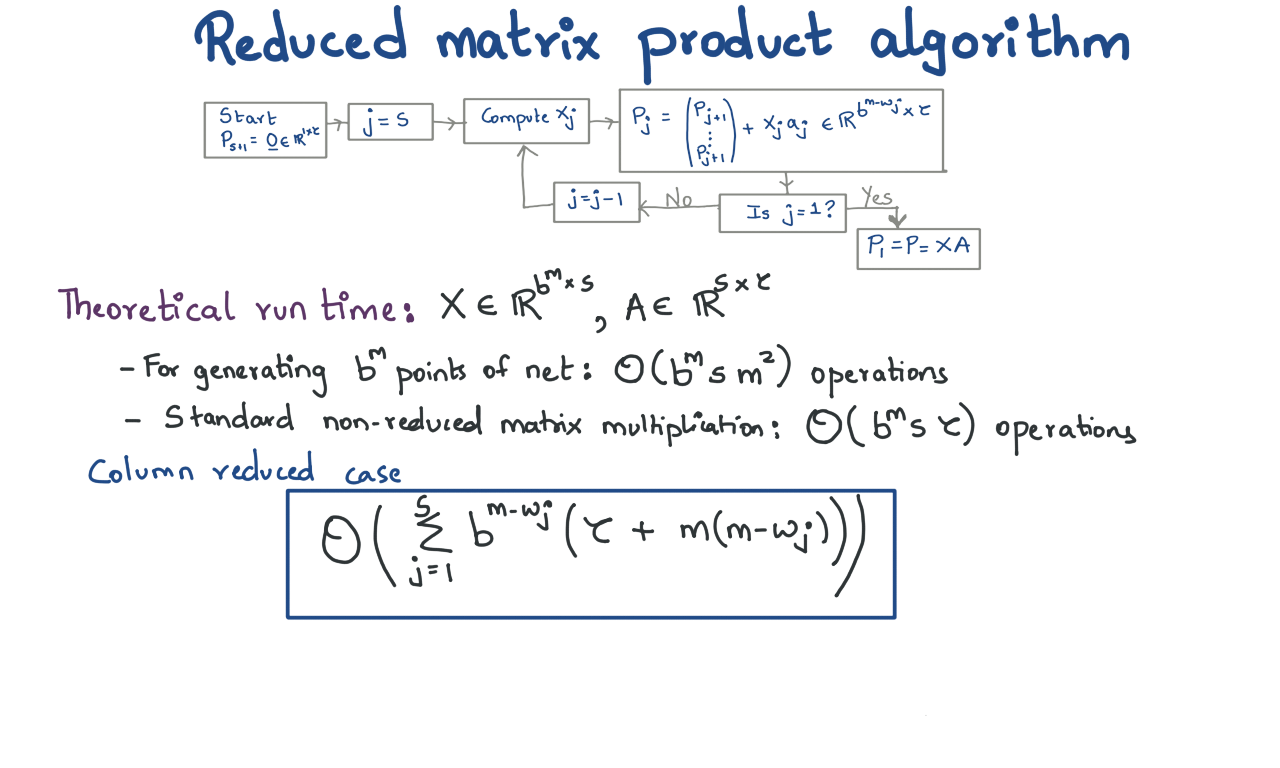 Reduced matrix product algorithm
Start
P_{s+1} = 0 ∈ ℝ^{1×τ}
j = s
Compute X_j
P_j = (P_{j+1} ⋮ P_{j+1}) + x_j a_j ∈ ℝ^{b^{m-w_j} × τ}
j = j-1
No
Is j = 1?
Yes
P_1 = P = XA
Theoretical run time: X ∈ ℝ^{b^m × s}, A ∈ ℝ^{s × τ}
- For generating b^m points of net: O(b^m s m^2) operations
- Standard non-reduced matrix multipliation: O(b^m s τ) operations
Column reduced case
O( Σ_{j=1}^{s} b^{m-w_j} (τ + m(m-w_j)))